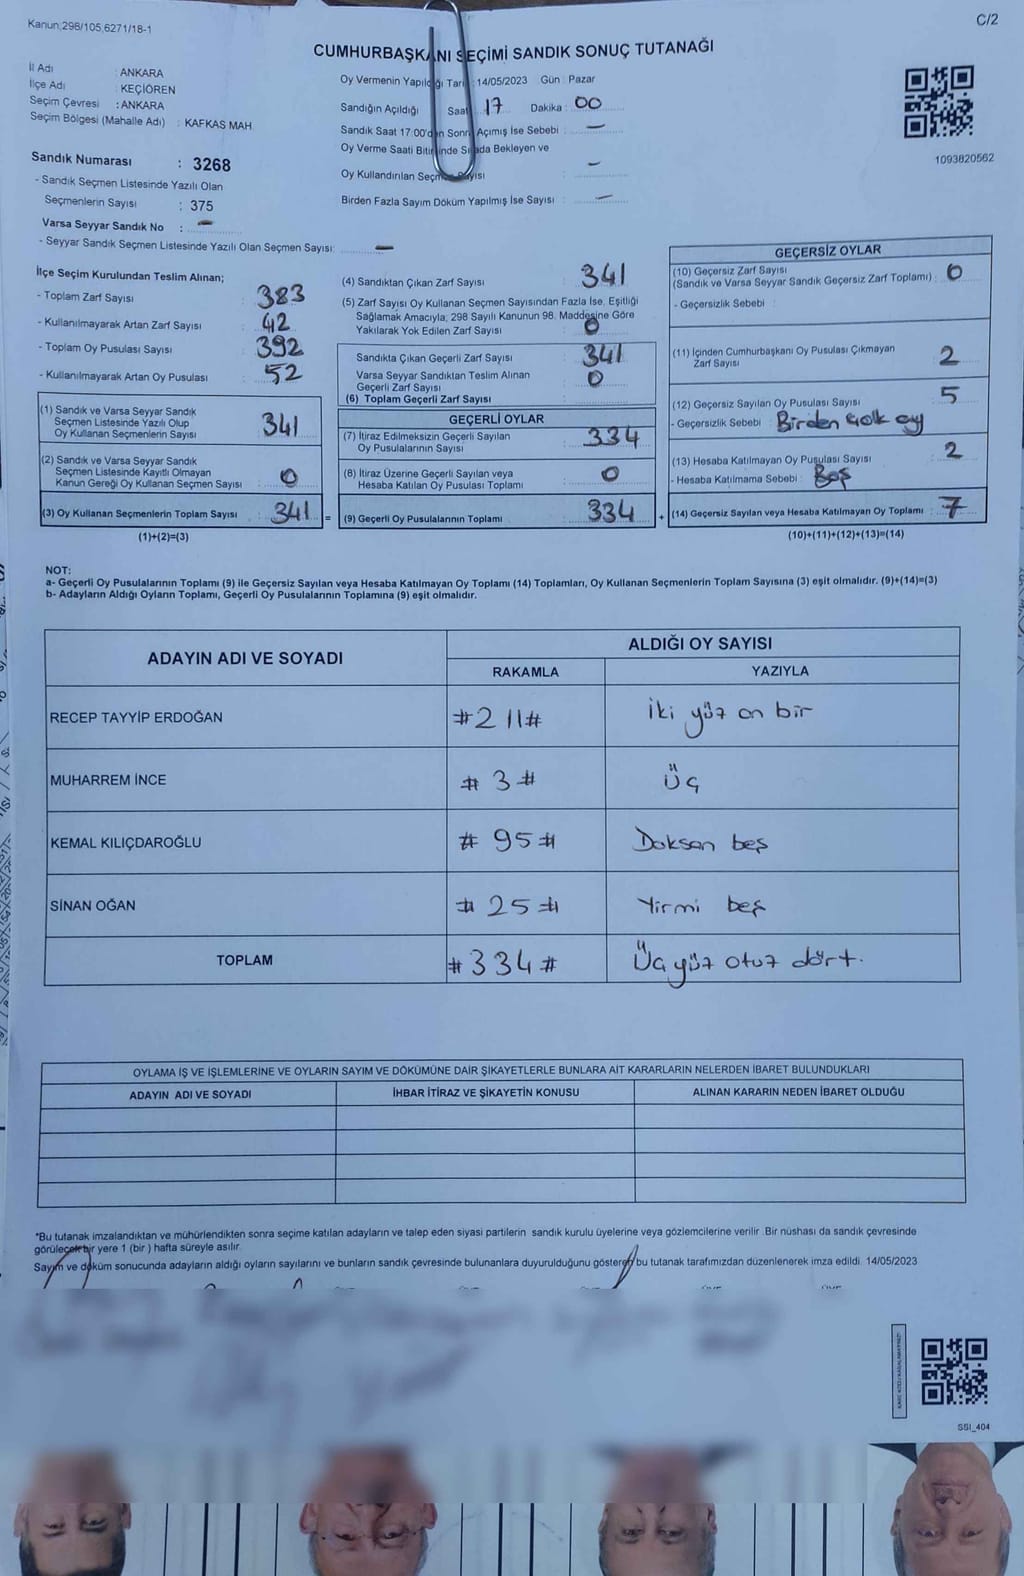 Kanun:298/105,6271/18-1
C/2
CUMHURBAŞKANI SEÇİMİ SANDIK SONUÇ TUTANAĞI
İl Adı : ANKARA
İlçe Adı : KEÇİÖREN
Seçim Çevresi : ANKARA
Seçim Bölgesi (Mahalle Adı) : KAFKAS MAH
Sandık Numarası : 3268
- Sandık Seçmen Listesinde Yazılı Olan
Seçmenlerin Sayısı : 375
Varsa Seyyar Sandık No : -
- Seyyar Sandık Seçmen Listesinde Yazılı Olan Seçmen Sayısı: -
Oy Vermenin Yapıldığı Tarih : 14/05/2023 Gün : Pazar
Sandığın Açıldığı Saat : 17 Dakika : 00
Sandık Saat 17:00'den Sonra Açımış İse Sebebi : -
Oy Verme Saati Bitiminde Sırada Bekleyen ve
Oy Kullandırılan Seçmen Sayısı : -
Birden Fazla Sayım Döküm Yapılmış İse Sayısı : -
1093820562
İlçe Seçim Kurulundan Teslim Alınan;
- Toplam Zarf Sayısı : 383
- Kullanılmayarak Artan Zarf Sayısı : 42
- Toplam Oy Pusulası Sayısı : 392
- Kullanılmayarak Artan Oy Pusulası : 52
(1) Sandık ve Varsa Seyyar Sandık
Seçmen Listesinde Yazılı Olup
Oy Kullanan Seçmenlerin Sayısı : 341
(2) Sandık ve Varsa Seyyar Sandık
Seçmen Listesinde Kayıtlı Olmayan
Kanun Gereği Oy Kullanan Seçmen Sayısı : 0
(3) Oy Kullanan Seçmenlerin Toplam Sayısı : 341 =
(1)+(2)=(3)
(4) Sandıktan Çıkan Zarf Sayısı : 341
(5) Zarf Sayısı Oy Kullanan Seçmen Sayısından Fazla İse, Eşitliği
Sağlamak Amacıyla; 298 Sayılı Kanunun 98. Maddesine Göre
Yakılarak Yok Edilen Zarf Sayısı : 0
Sandıkta Çıkan Geçerli Zarf Sayısı : 341
Varsa Seyyar Sandıktan Teslim Alınan
Geçerli Zarf Sayısı : 0
(6) Toplam Geçerli Zarf Sayısı :
GEÇERLİ OYLAR
(7) İtiraz Edilmeksizin Geçerli Sayılan
Oy Pusulalarının Sayısı : 334
(8) İtiraz Üzerine Geçerli Sayılan veya
Hesaba Katılan Oy Pusulası Toplamı : 0
(9) Geçerli Oy Pusulalarının Toplamı : 334 +
GEÇERSİZ OYLAR
(10) Geçersiz Zarf Sayısı
(Sandık ve Varsa Seyyar Sandık Geçersiz Zarf Toplamı) : 0
- Geçersizlik Sebebi :
(11) İçinden Cumhurbaşkanı Oy Pusulası Çıkmayan
Zarf Sayısı : 2
(12) Geçersiz Sayılan Oy Pusulası Sayısı : 5
- Geçersizlik Sebebi : Birden çok oy
(13) Hesaba Katılmayan Oy Pusulası Sayısı : 2
- Hesaba Katılmama Sebebi : Boş
(14) Geçersiz Sayılan veya Hesaba Katılmayan Oy Toplamı : 7
(10)+(11)+(12)+(13)=(14)
NOT:
a- Geçerli Oy Pusulalarının Toplamı (9) ile Geçersiz Sayılan veya Hesaba Katılmayan Oy Toplamı (14) Toplamları, Oy Kullanan Seçmenlerin Toplam Sayısına (3) eşit olmalıdır. (9)+(14)=(3)
b- Adayların Aldığı Oyların Toplamı, Geçerli Oy Pusulalarının Toplamına (9) eşit olmalıdır.
ADAYIN ADI VE SOYADI ALDIĞI OY SAYISI
RAKAMLA YAZIYLA
RECEP TAYYİP ERDOĞAN #211# İki yüz on bir
MUHARREM İNCE # 3 # Üç
KEMAL KILIÇDAROĞLU # 95 # Doksan beş
SİNAN OĞAN # 25 # Yirmi beş
TOPLAM #334# Üç yüz otuz dört.
OYLAMA İŞ VE İŞLEMLERİNE VE OYLARIN SAYIM VE DÖKÜMÜNE DAİR ŞİKAYETLERLE BUNLARA AİT KARARLARIN NELERDEN İBARET BULUNDUKLARI
ADAYIN ADI VE SOYADI İHBAR İTİRAZ VE ŞİKAYETİN KONUSU ALINAN KARARIN NEDEN İBARET OLDUĞU
*Bu tutanak imzalandıktan ve mühürlendikten sonra seçime katılan adayların ve talep eden siyasi partilerin sandık kurulu üyelerine veya gözlemcilerine verilir. Bir nüshası da sandık çevresinde
görülecek bir yere 1 (bir ) hafta süreyle asılır.
Sayım ve döküm sonucunda adayların aldığı oyların sayılarını ve bunların sandık çevresinde bulunanlara duyurulduğunu gösteren bu tutanak tarafımızdan düzenlenerek imza edildi. 14/05/2023
SSI_404